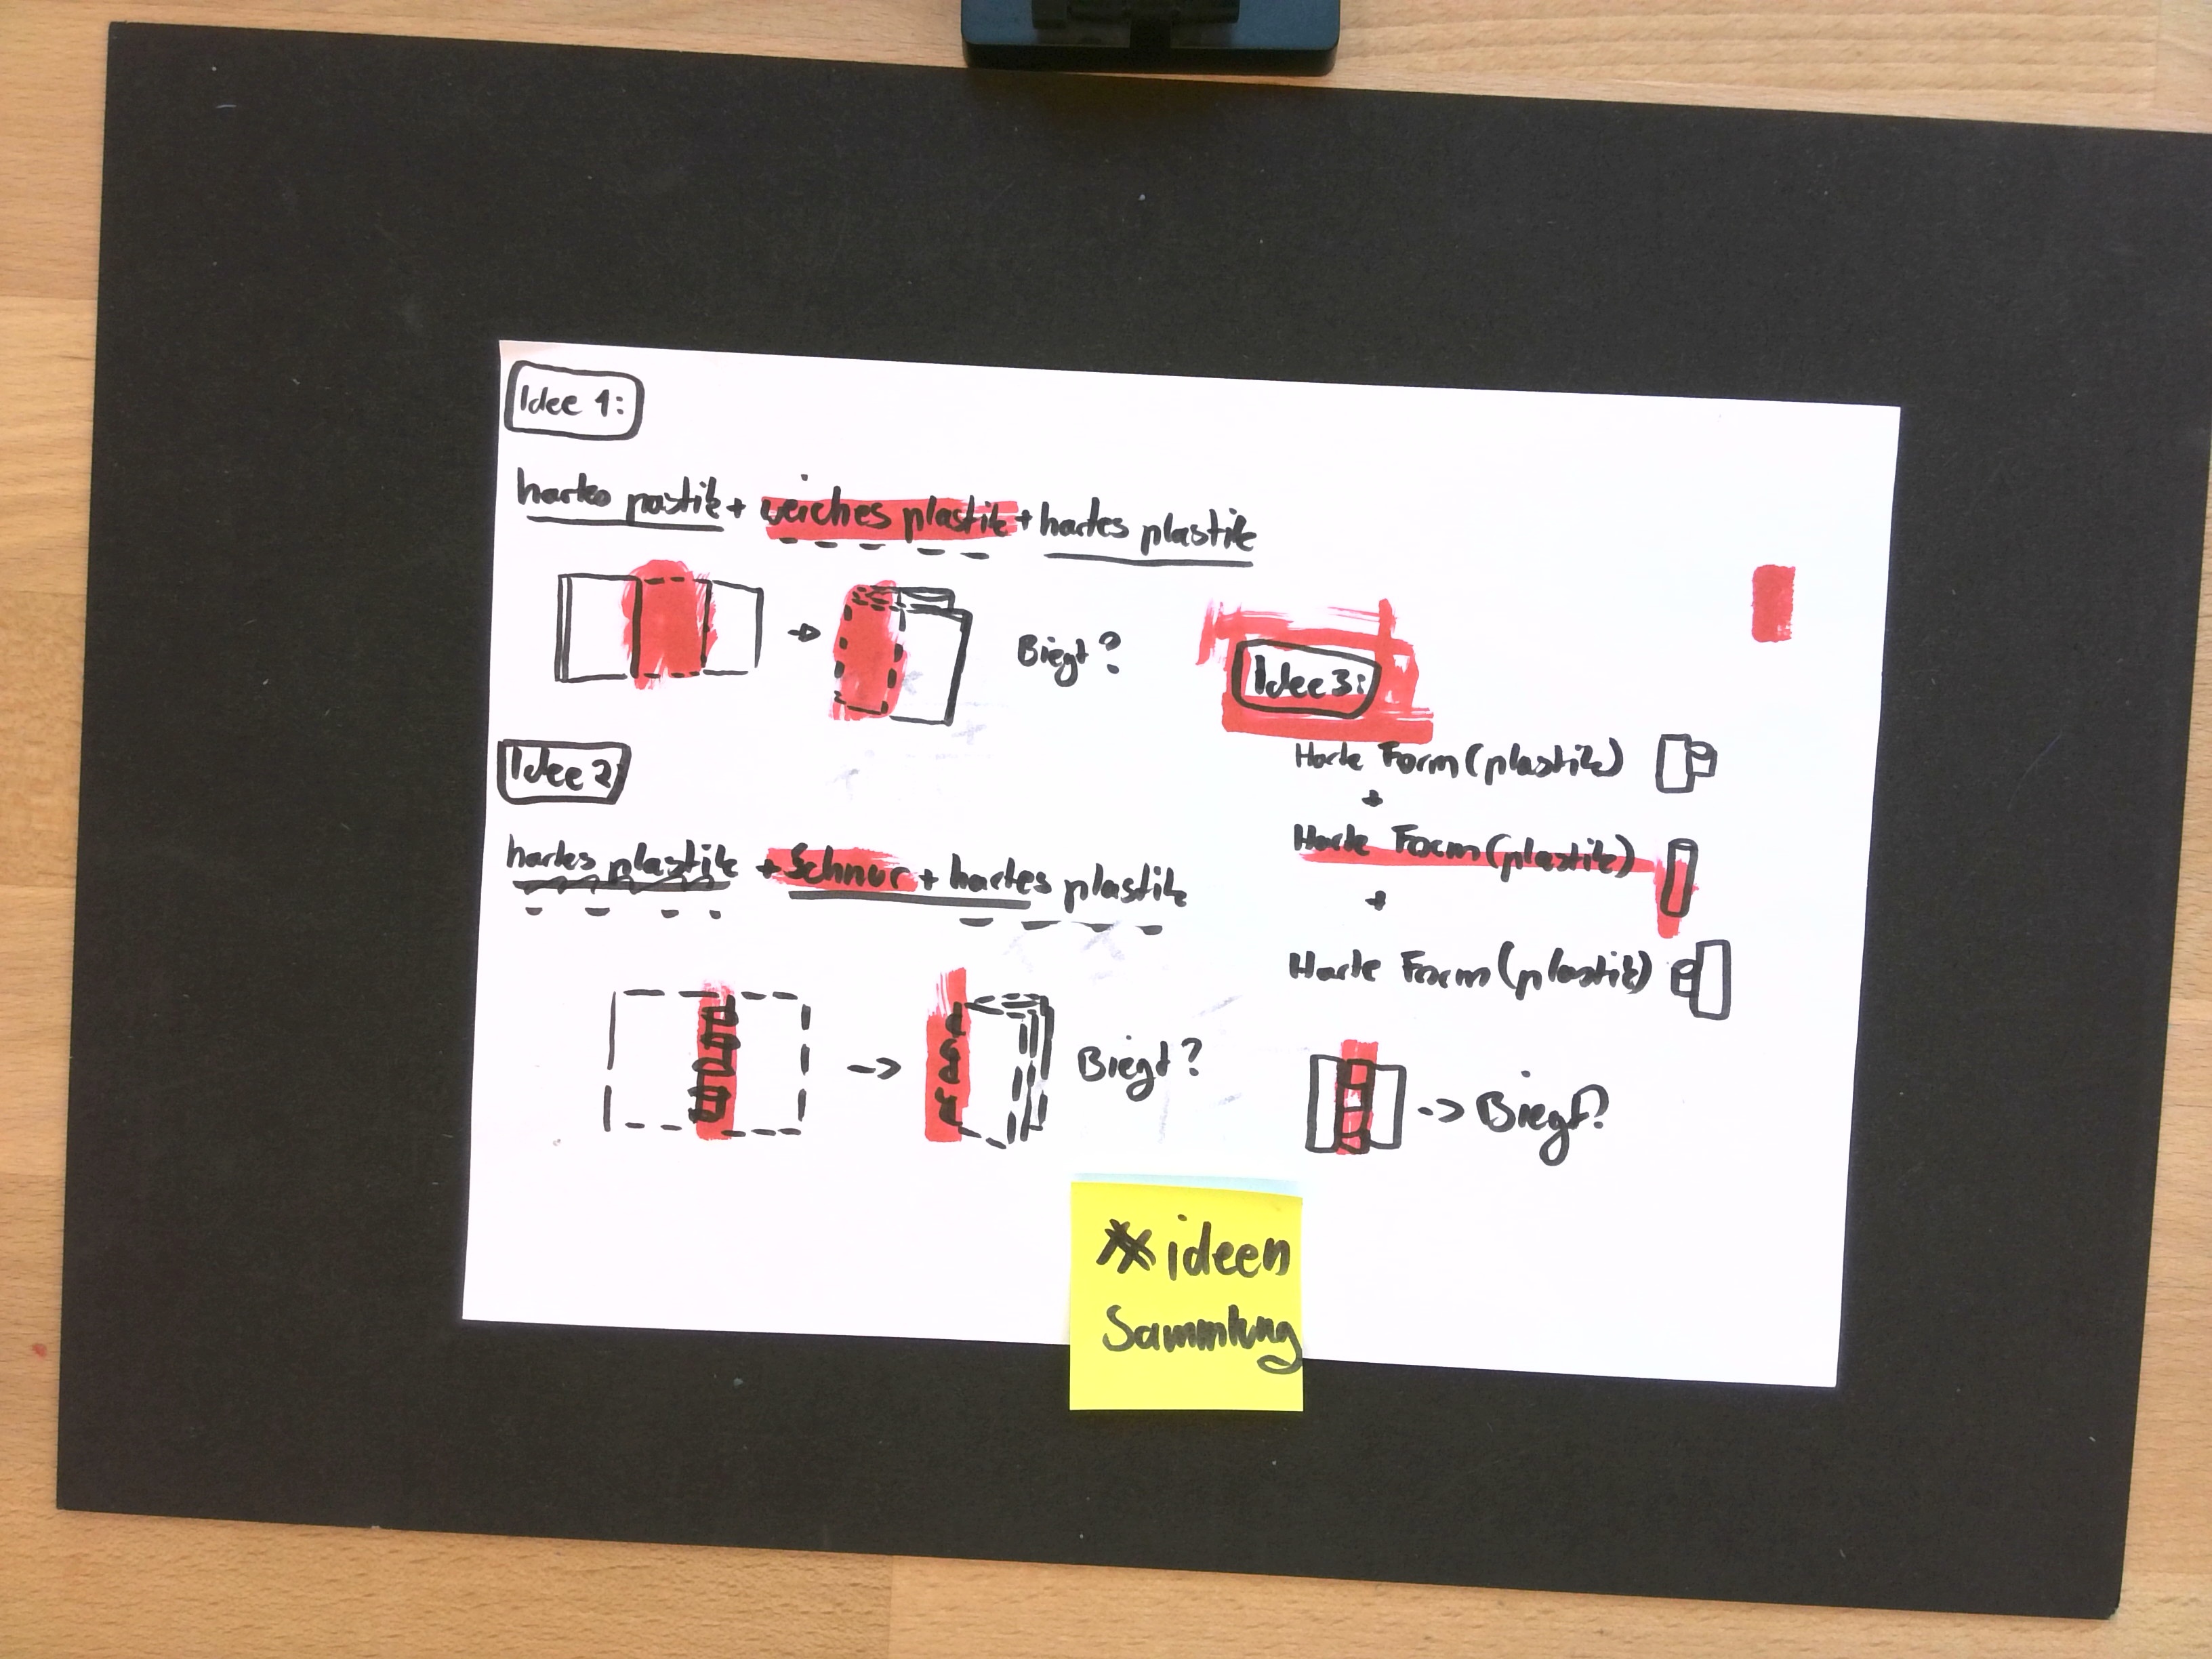 Idee 1:
hartes pastik + weiches plastik + hartes plastik
Biegt?
Idee 2
hartes plastik + Schnur + hartes plastik
Biegt?
Idee 3:
Harte Form (plastik)
+
Harte Form (plastik)
+
Harte Form (plastik)
-> Biegt?
ideen
Sammlung